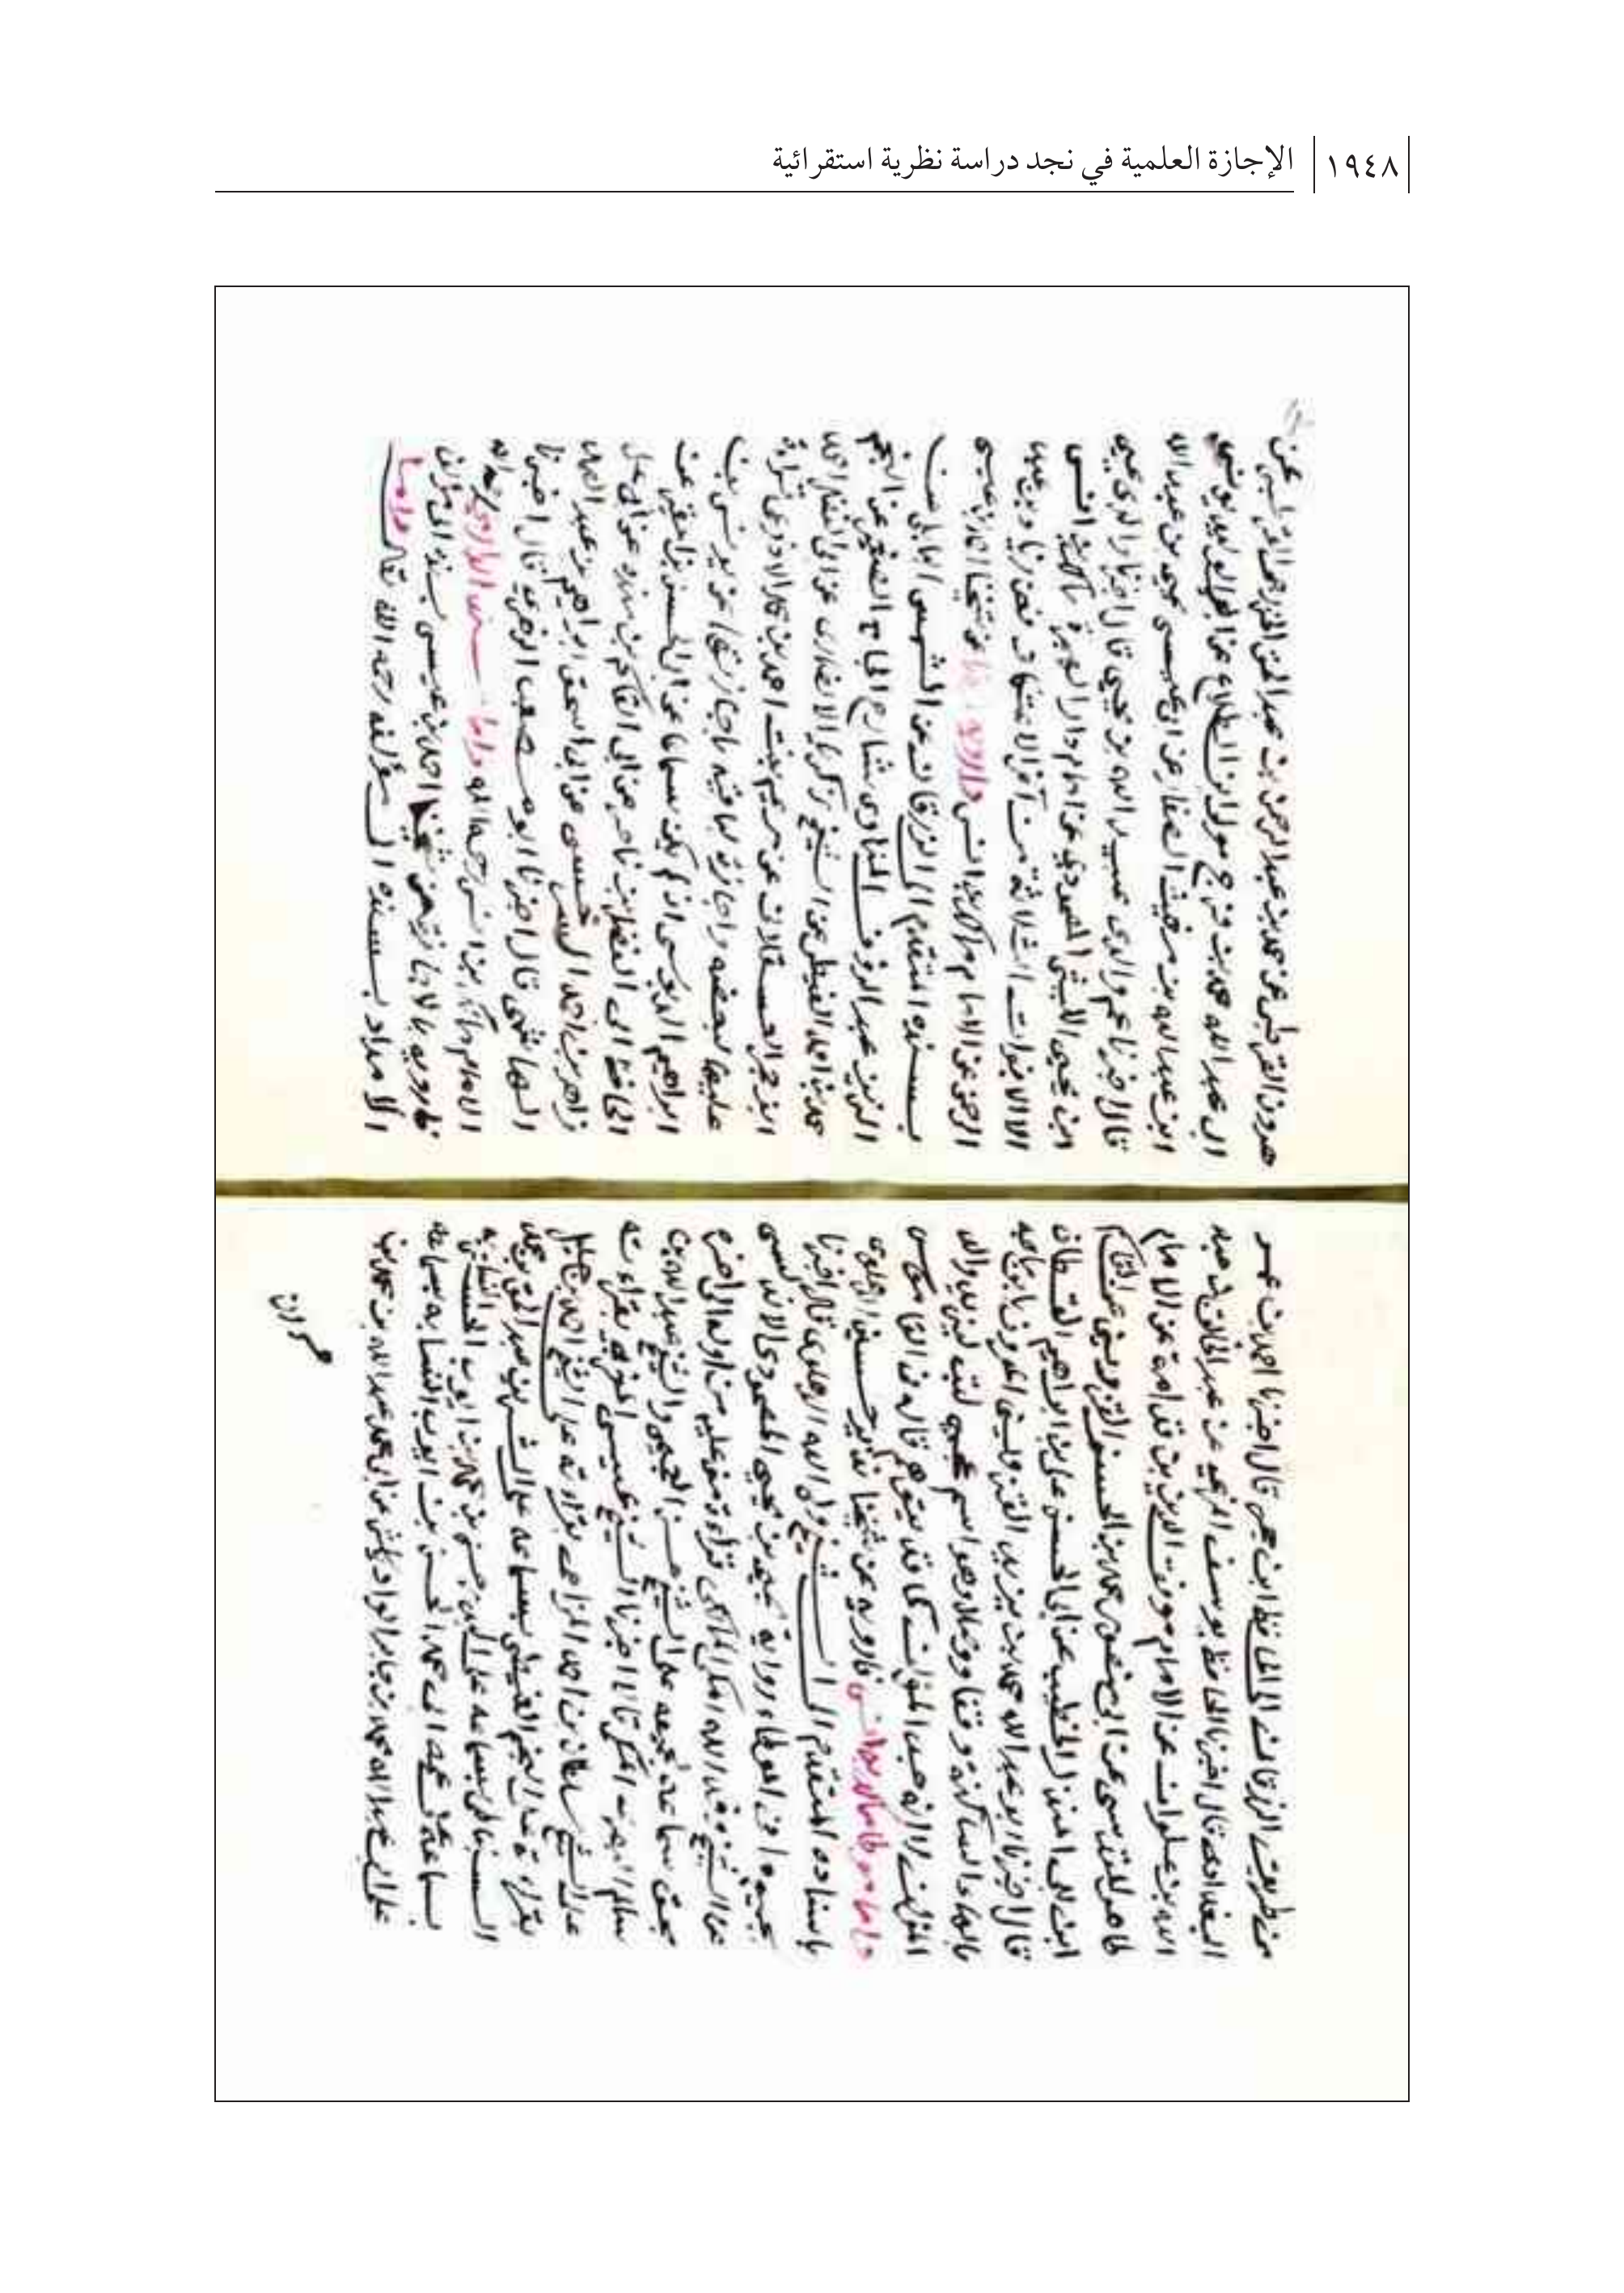 ١٩٤٨ الإجازة العلمية في نجد دراسة نظرية استقرائية
من طريق الزرقاني الى الحافظ ابن حجر قال اخبرنا احمد بن عمر
البغدادي قال اخبرنا الحافظ يوسف المزي عن عبد الخالق بن عبد
بن علوان عن الامام موفق الدين بن قدامة عن الامام
طاهر المقدسي عن ابي منصور محمد بن الحسين القزويني عن القاسم
ابن ابي المنذر الخطيب عن ابي الحسن علي بن ابراهيم القطان
قال اخبرنا ابو عبد الله محمد بن يزيد القزويني المعروف بابن ماجه
بالهاء الساكنة وقفا ووصلا وهو اسم عجمي لقب ليزيد والد
المؤلف لا انه جد المؤلف كما قد يتوهم قاله في القاموس
واما موطا مالك بن انس فارويه عن شيخنا نذير حسين الدهلوي
باسناده المتقدم الى الشيخ ولي الله الدهلوي قال اخبرنا
بجميع ما في الموطاء رواية يحيى بن يحيى المصمودي الاندلسي
عن الشيخ وفد الله المكي المالكي قراءة مني عليه من اوله الى اخره
بحق سماعه لجميعه على الشيخ حسن العجيمي والشيخ عبد الله بن
سالم البصري المكي قالا اخبرنا الشيخ عيسى المغربي بقراءته
على الشيخ سلطان بن احمد المزاحي بقراءته على الشيخ احمد بن خليل
بقراءته على النجم الغيطي بسماعه على الشرف عبد الحق بن محمد
السنباطي بسماعه على البدر حسن بن محمد بن ايوب الحسني النسابه
بسماعه عن عمه ابي محمد الحسن بن ايوب النسابه بسماعه
على ابي عبد الله محمد بن جابر الوادياشي عن ابي محمد عبد الله بن محمد بن
هرون
هرون القرطبي عن محمد بن عبد الرحمن بن عبد الحق الخزرجي القرطبي عن
ابي عبد الله محمد بن فرج مولى ابن الطلاع عن ابي الوليد يونس
ابن عبد الله بن مغيث الصفار عن ابي عيسى يحيى بن عبد الله
قال اخبرنا عم والدي عبيد الله بن يحيى قال اخبرنا والدي يحيى
ابن يحيى الليثي المصمودي عن امام دار الهجرة مالك بن انس
الا الابواب الثلاثة من آخر الاعتكاف فعن زياد بن عبد
الرحمن عن الامام مالك بن انس وارويه عن شيخنا احمد بن عيسى
بسنده المتقدم الى الزرقاني عن الشمس البابلي عن
الزين عبد الرؤف المناوي شارح الجامع الصغير عن النجم
محمد بن احمد الغيطي عن الشيخ زكريا الانصاري عن ابي الفضل احمد
ابن حجر العسقلاني عن مريم بنت احمد بن محمد الاذرعي قراءة
عليها لبعضه واجازة لباقيه باجازتها عن يونس بن
ابراهيم الدبوسي ان لم يكن سماعا عن ابي الحسن بن المقير عن
الحافظ ابي الفضل بن ناصر عن ابي القاسم بن منده عن ابي علي
زاهر بن احمد السرخسي عن ابي اسحق ابراهيم بن عبد الصمد
الهاشمي قال اخبرنا ابو مصعب الزهري قال اخبرنا
الامام مالك بن انس رحمه الله واما سنن الدارمي رحمه الله
فارويه بالاجازة عن شيخنا احمد بن عيسى بسنده الى مؤلف
الامداد بسنده الى مؤلفه رحمه الله تعالى واما